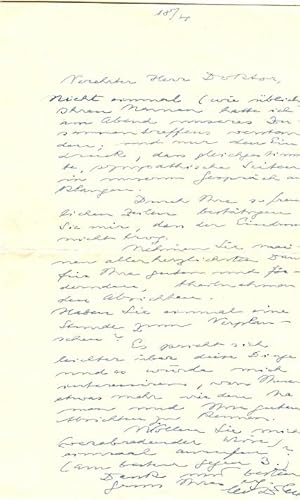 18/4
Verehrter Herr Doktor,
Nicht einmal (wie üblich)
Ihren Namen hatte ich
am Abend unseres Zu-
sammentreffens verstan-
den; und nur den Ein-
druck, dass gleichgestimm-
te, sympathische Saiten
in unserem Gespräch an-
klangen.
Durch Ihre so freund-
lichen Zeilen bestätigen
Sie mir, dass der Eindruck
nicht trog.
Nehmen Sie mei-
nen allerherzlichsten Dank
für Ihre guten und för-
dernden,
den Absichten.
Haben Sie einmal eine
Stunde zum Verplau-
schen? Es spricht sich
leichter über diese Dinge
und so würde mich
interessieren, von Ihnen
etwas mehr wie den Na-
men und Ihre guten
Absichten zu kennen.
Wollen Sie mich
einmal anrufen?
(am besten gegen
Dank und besten
Gruss Ihres